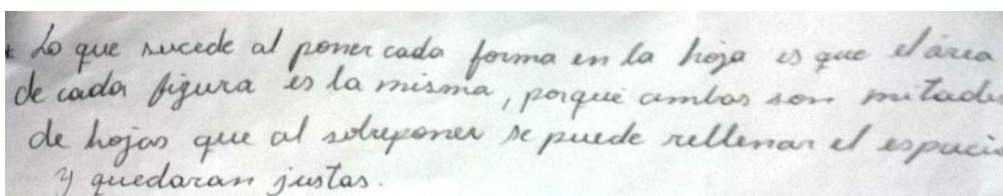 * Lo que sucede al poner cada forma en la hoja es que el área
de cada figura es la misma, porque ambas son mitades
de hojas que al sobreponer se puede rellenar el espacio
y quedaran justas.